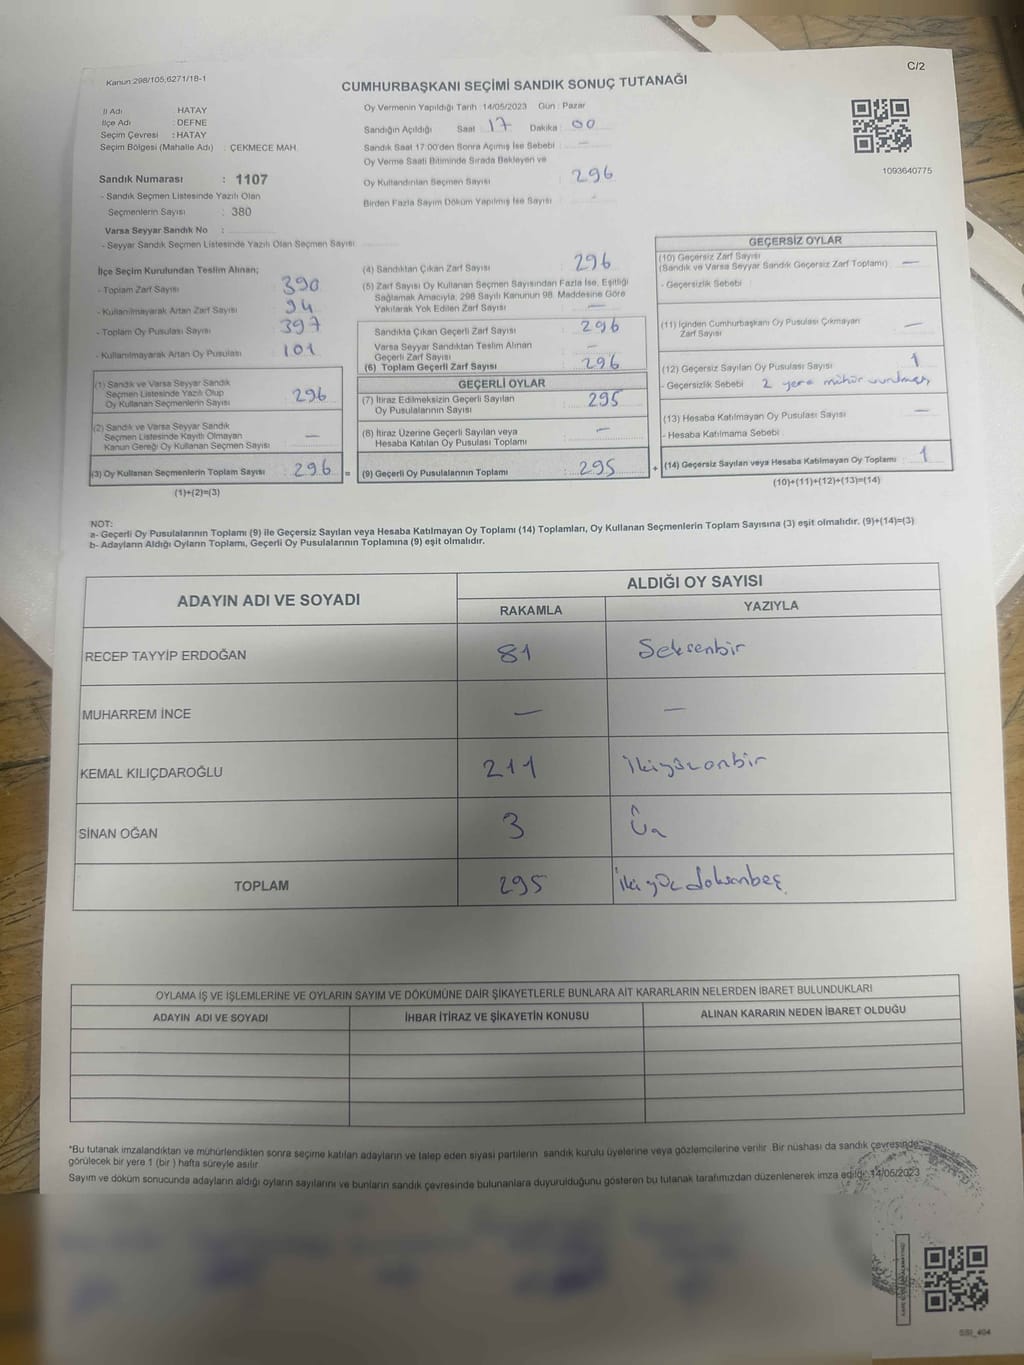 Kanun:298/105,6271/18-1
C/2
CUMHURBAŞKANI SEÇİMİ SANDIK SONUÇ TUTANAĞI
İl Adı : HATAY
İlçe Adı : DEFNE
Seçim Çevresi : HATAY
Seçim Bölgesi (Mahalle Adı) : ÇEKMECE MAH.
Sandık Numarası : 1107
- Sandık Seçmen Listesinde Yazılı Olan
Seçmenlerin Sayısı : 380
Varsa Seyyar Sandık No :
- Seyyar Sandık Seçmen Listesinde Yazılı Olan Seçmen Sayısı
Oy Vermenin Yapıldığı Tarih : 14/05/2023 Gün : Pazar
Sandığın Açıldığı Saat : 17 Dakika : 00
Sandık Saat 17:00'den Sonra Açılmış İse Sebebi : —
Oy Verme Saati Bitiminde Sırada Bekleyen ve
Oy Kullandırılan Seçmen Sayısı : 296
Birden Fazla Sayım Döküm Yapılmış İse Sayısı : -
1093640775
İlçe Seçim Kurulundan Teslim Alınan;
- Toplam Zarf Sayısı 390
- Kullanılmayarak Artan Zarf Sayısı 94
- Toplam Oy Pusulası Sayısı 397
- Kullanılmayarak Artan Oy Pusulası 101
(1) Sandık ve Varsa Seyyar Sandık
Seçmen Listesinde Yazılı Olup
Oy Kullanan Seçmenlerin Sayısı : 296
(2) Sandık ve Varsa Seyyar Sandık
Seçmen Listesinde Kayıtlı Olmayan
Kanun Gereği Oy Kullanan Seçmen Sayısı : —
(3) Oy Kullanan Seçmenlerin Toplam Sayısı : 296 =
(1)+(2)=(3)
(4) Sandıktan Çıkan Zarf Sayısı : 296
(5) Zarf Sayısı Oy Kullanan Seçmen Sayısından Fazla İse, Eşitliği
Sağlamak Amacıyla, 298 Sayılı Kanunun 98. Maddesine Göre
Yakılarak Yok Edilen Zarf Sayısı : —
Sandıkta Çıkan Geçerli Zarf Sayısı : 296
Varsa Seyyar Sandıktan Teslim Alınan
Geçerli Zarf Sayısı : —
(6) Toplam Geçerli Zarf Sayısı : 296
GEÇERLİ OYLAR
(7) İtiraz Edilmeksizin Geçerli Sayılan
Oy Pusulalarının Sayısı : 295
(8) İtiraz Üzerine Geçerli Sayılan veya
Hesaba Katılan Oy Pusulası Toplamı : —
(9) Geçerli Oy Pusulalarının Toplamı : 295 +
GEÇERSİZ OYLAR
(10) Geçersiz Zarf Sayısı
(Sandık ve Varsa Seyyar Sandık Geçersiz Zarf Toplamı) : —
- Geçersizlik Sebebi :
(11) İçinden Cumhurbaşkanı Oy Pusulası Çıkmayan
Zarf Sayısı : —
(12) Geçersiz Sayılan Oy Pusulası Sayısı : 1
- Geçersizlik Sebebi : 2 yere mühür vurulmuş
(13) Hesaba Katılmayan Oy Pusulası Sayısı : —
- Hesaba Katılmama Sebebi :
(14) Geçersiz Sayılan veya Hesaba Katılmayan Oy Toplamı : 1
(10)+(11)+(12)+(13)=(14)
NOT:
a- Geçerli Oy Pusulalarının Toplamı (9) ile Geçersiz Sayılan veya Hesaba Katılmayan Oy Toplamı (14) Toplamları, Oy Kullanan Seçmenlerin Toplam Sayısına (3) eşit olmalıdır. (9)+(14)=(3)
b- Adayların Aldığı Oyların Toplamı, Geçerli Oy Pusulalarının Toplamına (9) eşit olmalıdır.
ADAYIN ADI VE SOYADI ALDIĞI OY SAYISI
RAKAMLA YAZIYLA
RECEP TAYYİP ERDOĞAN 81 Seksenbir
MUHARREM İNCE — —
KEMAL KILIÇDAROĞLU 211 ikiyüzonbir
SİNAN OĞAN 3 Üç
TOPLAM 295 İkiyüzdoksanbeş
OYLAMA İŞ VE İŞLEMLERİNE VE OYLARIN SAYIM VE DÖKÜMÜNE DAİR ŞİKAYETLERLE BUNLARA AİT KARARLARIN NELERDEN İBARET BULUNDUKLARI
ADAYIN ADI VE SOYADI İHBAR İTİRAZ VE ŞİKAYETİN KONUSU ALINAN KARARIN NEDEN İBARET OLDUĞU
*Bu tutanak imzalandıktan ve mühürlendikten sonra seçime katılan adayların ve talep eden siyasi partilerin sandık kurulu üyelerine veya gözlemcilerine verilir. Bir nüshası da sandık çevresinde
görülecek bir yere 1 (bir ) hafta süreyle asılır.
Sayım ve döküm sonucunda adayların aldığı oyların sayılarını ve bunların sandık çevresinde bulunanlara duyurulduğunu gösteren bu tutanak tarafımızdan düzenlenerek imza edildi. 14/05/2023
SSI_404